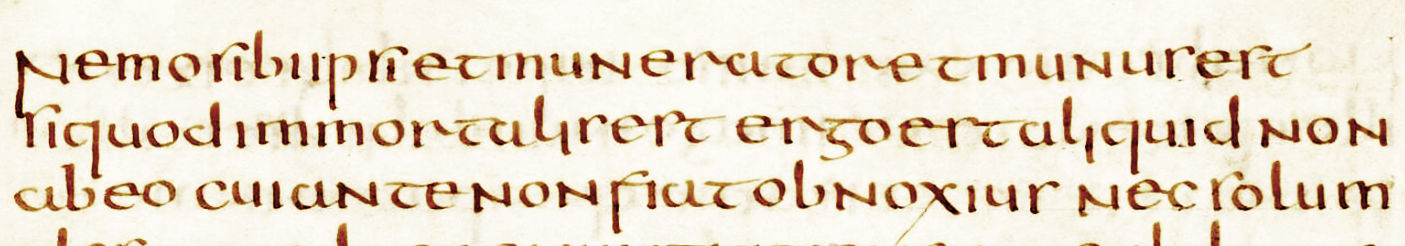 Nemosibiipsietmuneratoretmunusest
siquodimmortalisest ergoestaliquid non
abeo cuiantenonfiatobnoxius necsolum